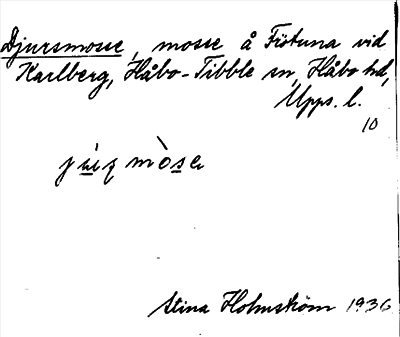 Djursmosse, mosse å Fistuna vid
Karlberg, Håbo-Tibble sn, Håbo hd,
Upps. l.
10
Stina Holmström 1936